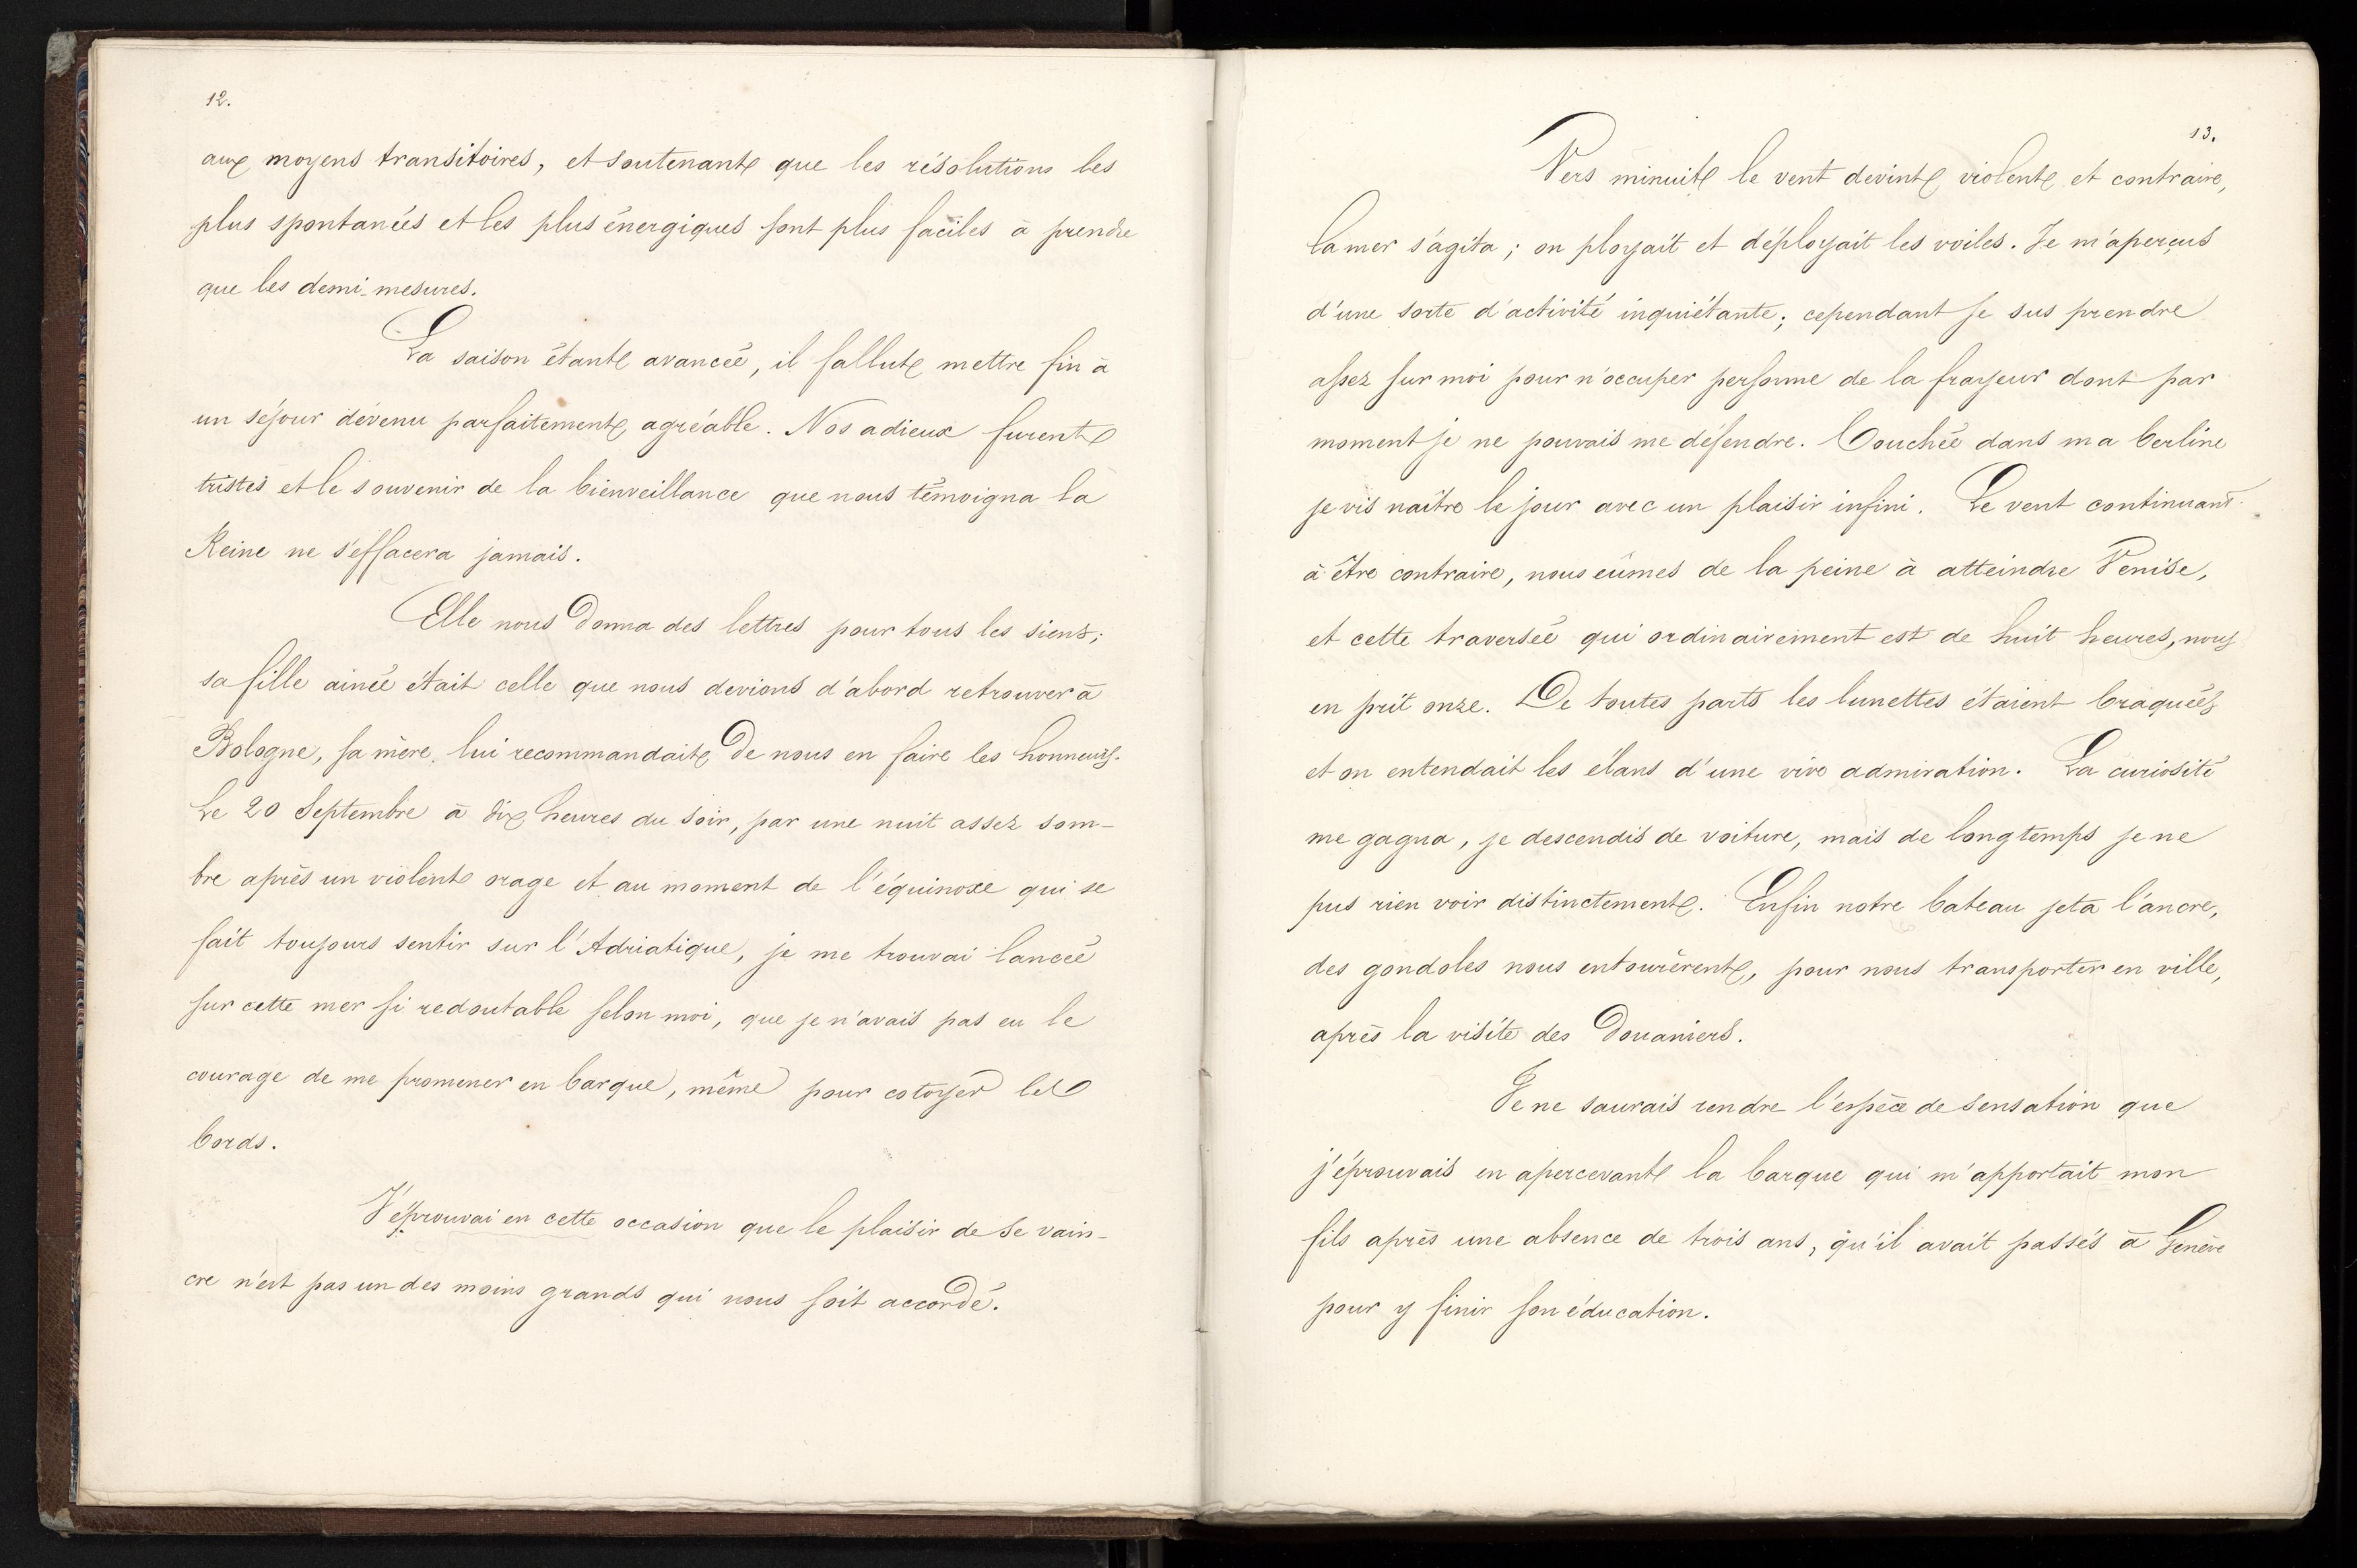 12.
aux moyens transitoires, et soutenant que les résolutions les
plus spontanées et les plus énergiques sont plus faciles à prendre
que les demi-mesures.
La saison étant avancée, il fallut mettre fin à
un séjour dévenu parfaitement agréable. Nos adieux furent
tristes et le souvenir de la bienveillance que nous témoigna la
Reine ne s'effacera jamais.
Elle nous donna des lettres pour tous les siens;
sa fille ainée était celle que nous devions d'abord retrouver à
Bologne, sa mère lui recommandait de nous en faire les honneurs.
Le 20 Septembre à dix heures du soir, par une nuit assez som-
bre après un violent orage et au moment de l'équinoxe qui se
fait toujours sentir sur l'Adriatique, je me trouvai lancée
sur cette mer si redoutable selon moi, que je n'avais pas eu le
courage de me promener en barque, même pour cotoyer les
bords.
J'éprouvai en cette occasion que le plaisir de se vain-
cre n'est pas un des moins grands qui nous soit accordé.
13.
Vers minuit le vent devint violent et contraire,
la mer s'agita; on ployait et déployait les voiles. Je m'aperçus
d'une sorte d'activité inquiétante; cependant je sus prendre
assez sur moi pour n'occuper personne de la frayeur dont par
moment je ne pouvais me défendre. Couchée dans ma berline
je vis naître le jour avec un plaisir infini. Le vent continuant
à être contraire, nous eûmes de la peine à atteindre Venise,
et cette traversée qui ordinairement est de huit heures, nous
en prit onze. De toutes parts les lunettes étaient braquées
et on entendait les élans d'une vive admiration. La curiosité
me gagna, je descendis de voiture, mais de longtemps je ne
pus rien voir distinctement. Enfin notre bateau jeta l'ancre,
des gondoles nous entourèrent, pour nous transporter en ville,
après la visite des Douaniers.
Je ne saurais rendre l'espèce de sensation que
j'éprouvais en apercevant la barque qui m'apportait mon
fils après une absence de trois ans, qu'il avait passés à Genève
pour y finir son éducation.